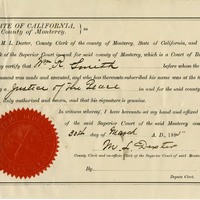 TE OF CALIFORNIA,
County of Monterey.
H. L. Dexter, County Clerk of the county of Monterey, State of California, and
of the Superior Court for said county of Monterey, which is a Court of
by certify that Wm R Smith before whom the
ument was made and executed, and who has hereunto subscribed his name was at the
a Justice of the Peace in and for said
uly authorized and sworn, and that his signature is genuine.
In witness whereof, I have hereunto set my hand and affixed
of the said Superior Court of the said county of Monterey
20th day of March A. D., 189
M. L. Dexter
County Clerk and ex-officio Clerk of the Superior Court of said Monterey
By
Deputy Clerk.